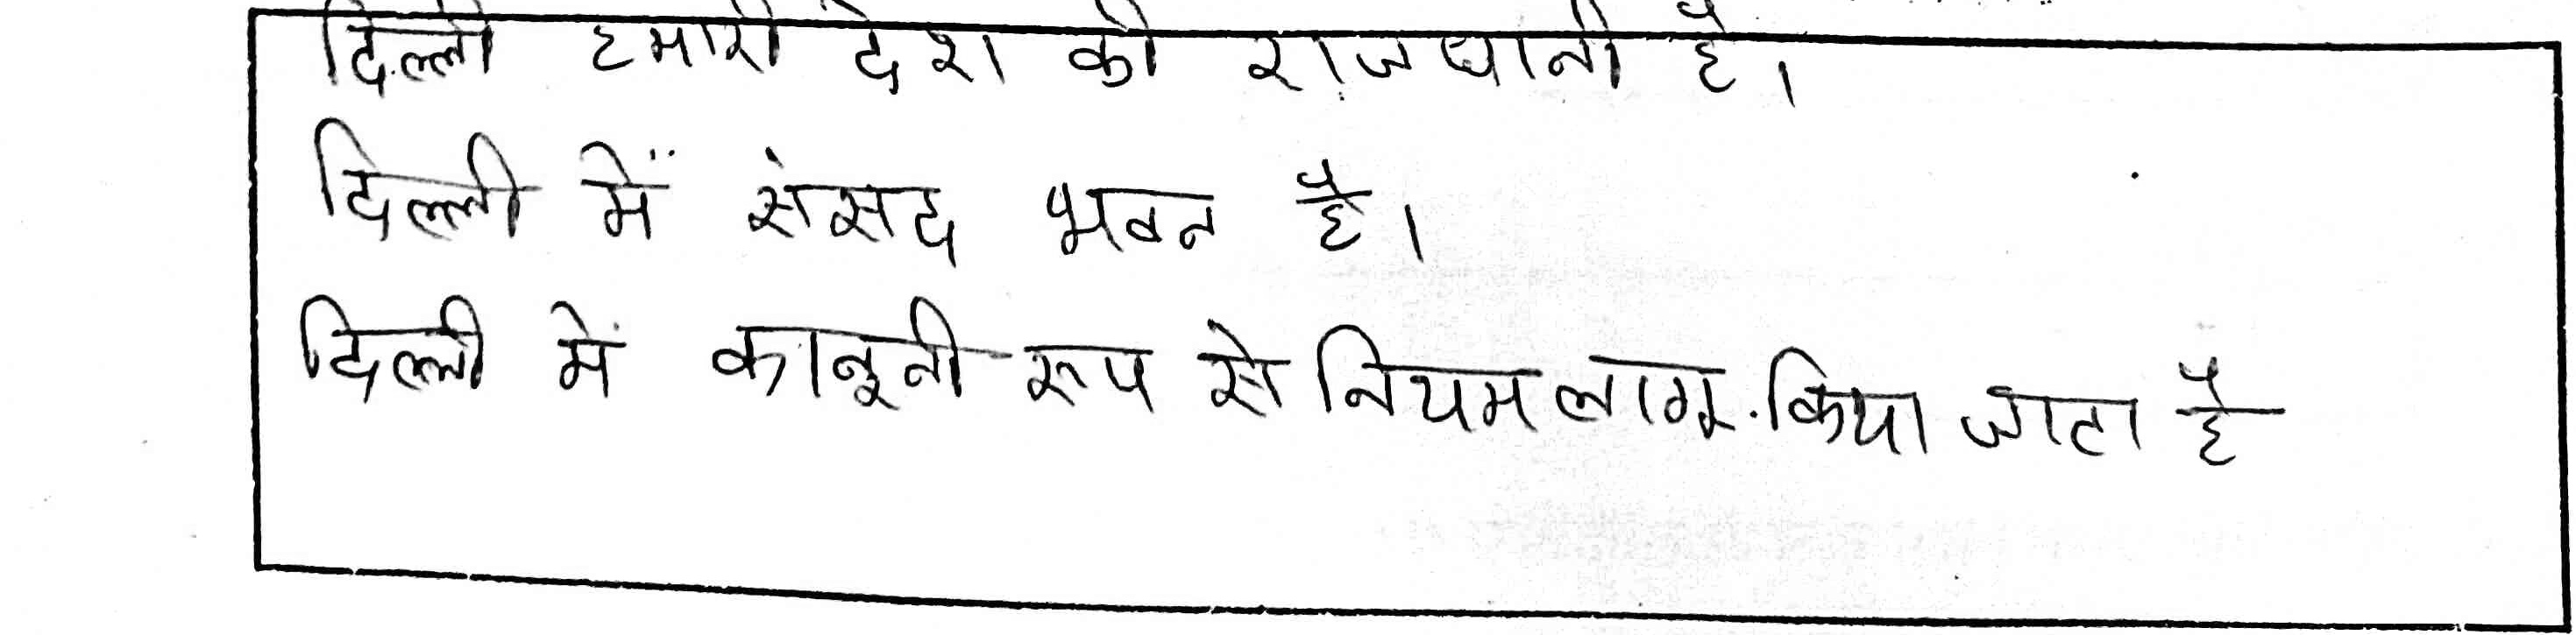 दिल्ली हमारी देश की राजधानी है।
दिल्ली में संसद भवन है।
दिल्ली में कानूनी रूप से नियम लागू किया जाता है